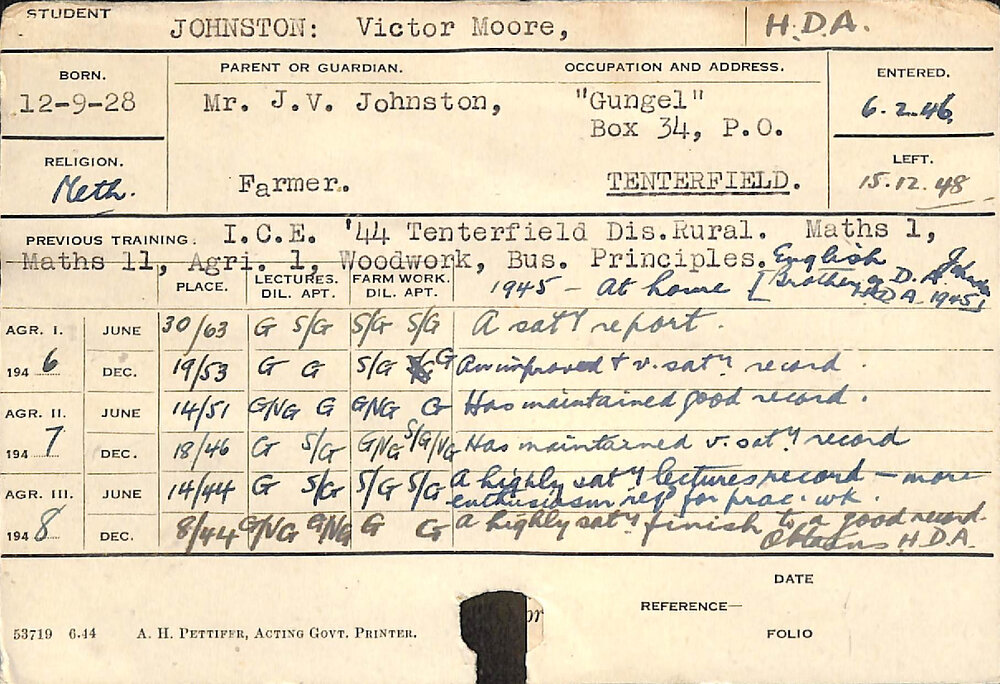 STUDENT
JOHNSTON: Victor Moore, H.D.A.
BORN. PARENT OR GUARDIAN. OCCUPATION AND ADDRESS. ENTERED.
12-9-28 Mr. J.V. Johnston, "Gungel" 6.2.46.
Box 34, P.O.
RELIGION. LEFT.
Meth. Farmer. TENTERFIELD. 15.12.48
PREVIOUS TRAINING. I.C.E. '44 Tenterfield Dis.Rural. Maths 1,
Maths 11, Agri. 1, Woodwork, Bus. Principles. English
PLACE. LECTURES. FARM WORK. 1945 - At home [Brother of D.A. Johnston
DIL. APT. DIL. APT. HDA 1945]
AGR. I. JUNE 30/63 G S/G S/G S/G A satʸ report.
1946 DEC. 19/53 G G S/G G An improved + v. satʸ record.
AGR. II. JUNE 14/51 G/VG G G/VG G Has maintained good record.
1947 DEC. 18/46 G S/G G/VG S/G/VG Has maintained v. satʸ record
AGR. III. JUNE 14/44 G S/G S/G S/G A highly satʸ lectures record - more
enthusiasm reqᵈ for prac. wk.
1948 DEC. 8/44 G/VG G/VG G G A highly satʸ finish to a good record.
Obtains H.D.A.
DATE
REFERENCE—
53719 6.44 A. H. PETTIFER, ACTING GOVT. PRINTER. FOLIO